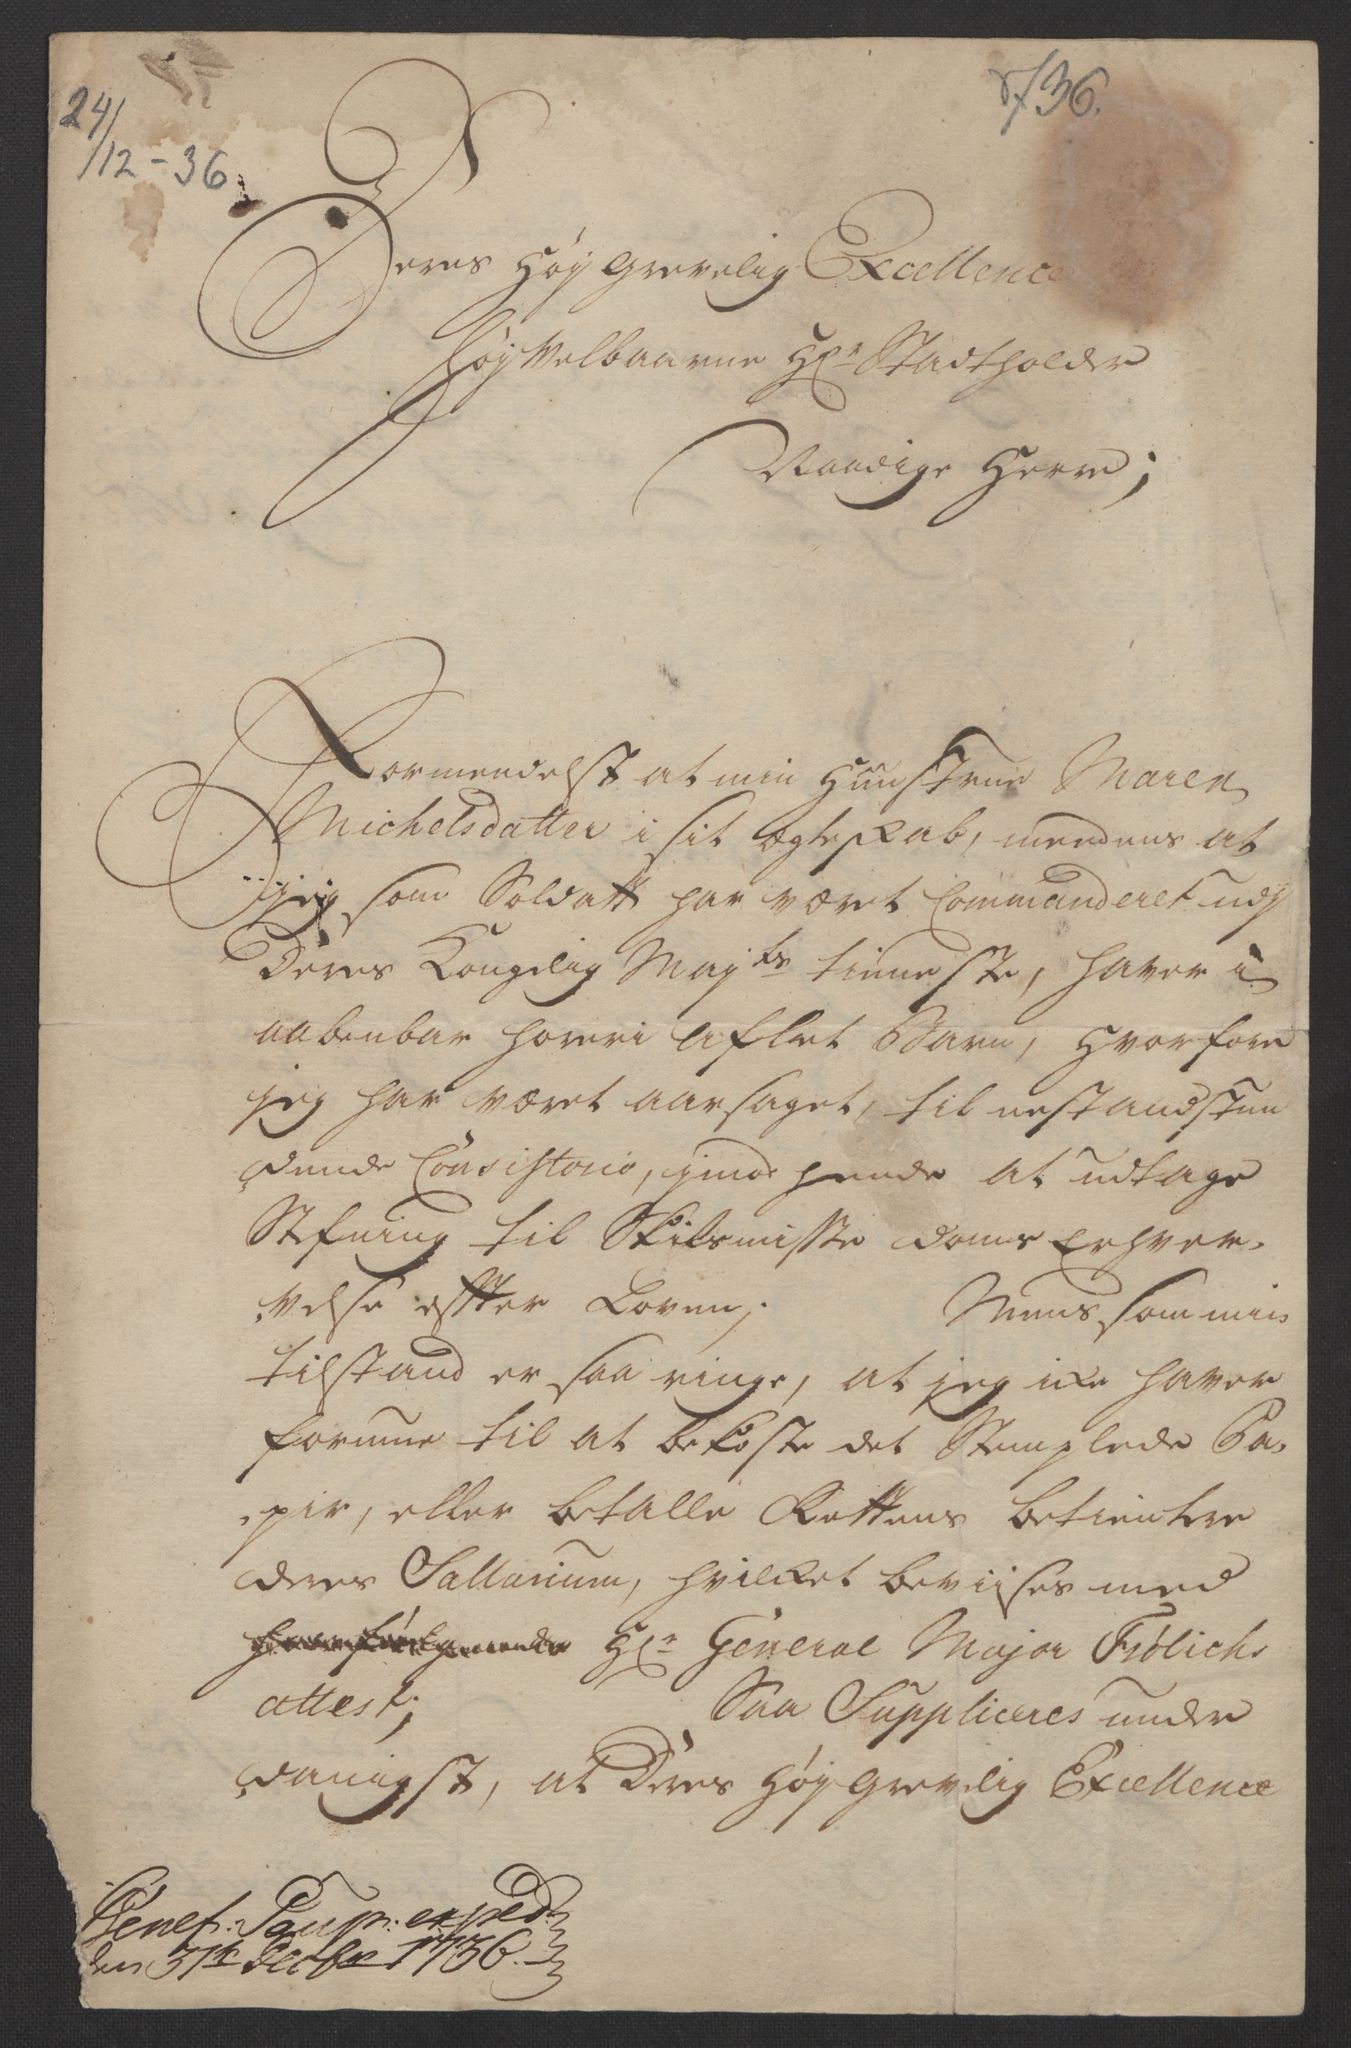 24/12-36
1736.
Deres Høy Grevelig Excellence
Høy Velbaarne Hr. Stadtholder
Naadige Herre;
Formendelst at min Hunstrue Maren
Michelsdatter i sit ægteskab, meedens at
jeg som Soldatt har været Commanderet udj
Deres Kongelig Majts tienneste, haver i
aabenbar horeri Aflet Barn, Hvorfore
jeg har været aarsaget, til nestandstun
dende Consistorio, imod hende at udtage
Stefning til Skilsmisse doms Erhver-
velse effter Loven; Mens som min
tilstand er saa ringe, at jeg icke haver
formue til at bekoste det Stemplede Pa-
pir, eller betalle Rettens betientere
deres Sallarium, hvilcket beviises med
Hr. General Major Frölichs
attest; Saa Suppliceres under
danigst, at Deres Høy Grevelig Excellence
Benef: Paup: exped:
den 31te Decbr 1736.